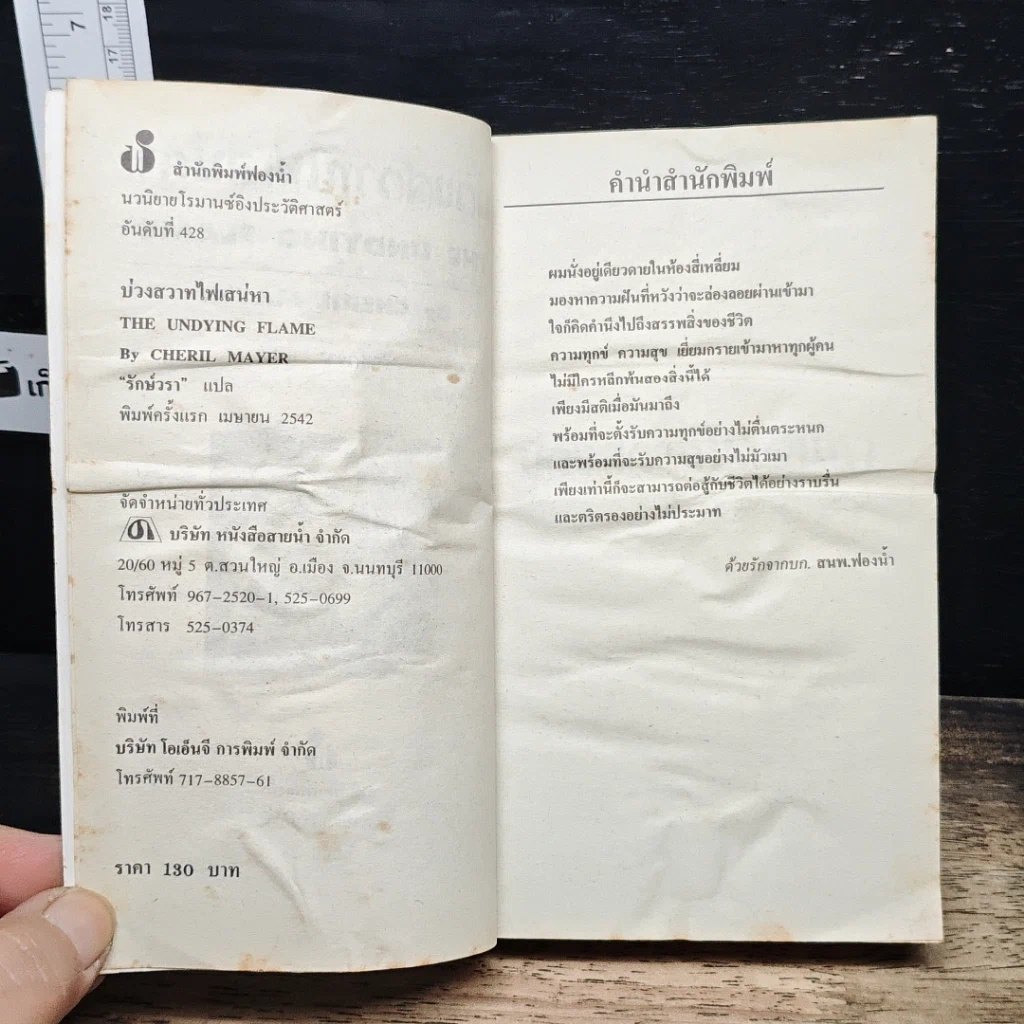 สำนักพิมพ์ฟองน้ำ
นวนิยายโรมานซ์อิงประวัติศาสตร์
อันดับที่ 428
บ่วงสวาทไฟเสน่หา
THE UNDYING FLAME
By CHERIL MAYER
“รักษ์วรา” แปล
พิมพ์ครั้งแรก เมษายน 2542
จัดจำหน่ายทั่วประเทศ
บริษัท หนังสือสายน้ำ จำกัด
20/60 หมู่ 5 ต.สวนใหญ่ อ.เมือง จ.นนทบุรี 11000
โทรศัพท์ 967-2520-1, 525-0699
โทรสาร 525-0374
พิมพ์ที่
บริษัท โอเอ็นจี การพิมพ์ จำกัด
โทรศัพท์ 717-8857-61
ราคา 130 บาท
คำนำสำนักพิมพ์
ผมนั่งอยู่เดียวดายในห้องสี่เหลี่ยม
มองหาความฝันที่หวังว่าจะล่องลอยผ่านเข้ามา
ใจก็คิดคำนึงไปถึงสรรพสิ่งของชีวิต
ความทุกข์ ความสุข เยี่ยมกรายเข้ามาหาทุกผู้คน
ไม่มีใครหลีกพ้นสองสิ่งนี้ได้
เพียงมีสติเมื่อมันมาถึง
พร้อมที่จะตั้งรับความทุกข์อย่างไม่ตื่นตระหนก
และพร้อมที่จะรับความสุขอย่างไม่มัวเมา
เพียงเท่านี้ก็จะสามารถต่อสู้กับชีวิตได้อย่างราบรื่น
และตริตรองอย่างไม่ประมาท
ด้วยรักจากบก. สนพ.ฟองน้ำ
7
18
17